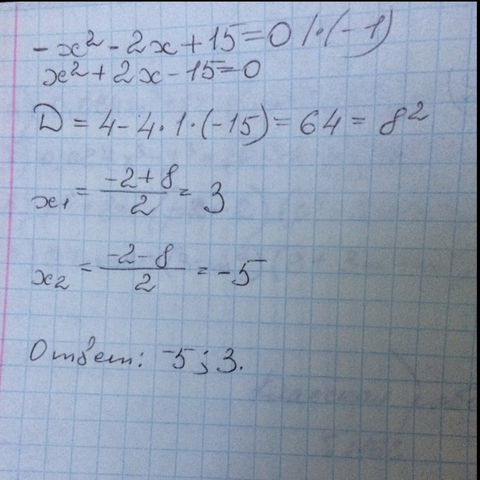 -x² - 2x + 15 = 0 | · (-1)
x² + 2x - 15 = 0
D = 4 - 4 · 1 · (-15) = 64 = 8²
x₁ = (-2 + 8)/2 = 3
x₂ = (-2 - 8)/2 = -5
Ответ: -5; 3.